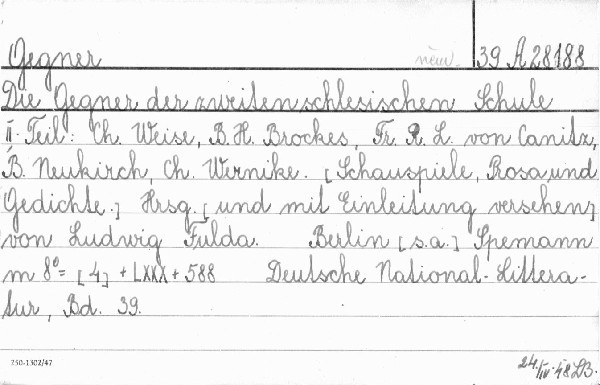 Gegner
něm. 39 A 28188
Die Gegner der zweiten schlesischen Schule
II. Teil: Ch. Weise, B. H. Brockes, Fr. R. L. von Canitz,
B. Neukirch, Ch. Wernike. [Schauspiele, Prosa und
Gedichte.] Hrsg. [und mit Einleitung versehen]
von Ludwig Fulda. Berlin [s.a.] Spemann
m 8° = [4] + LXXX + 588 Deutsche National-Littera-
tur, Bd. 39.
750-1302/47
24/III.48 LB.